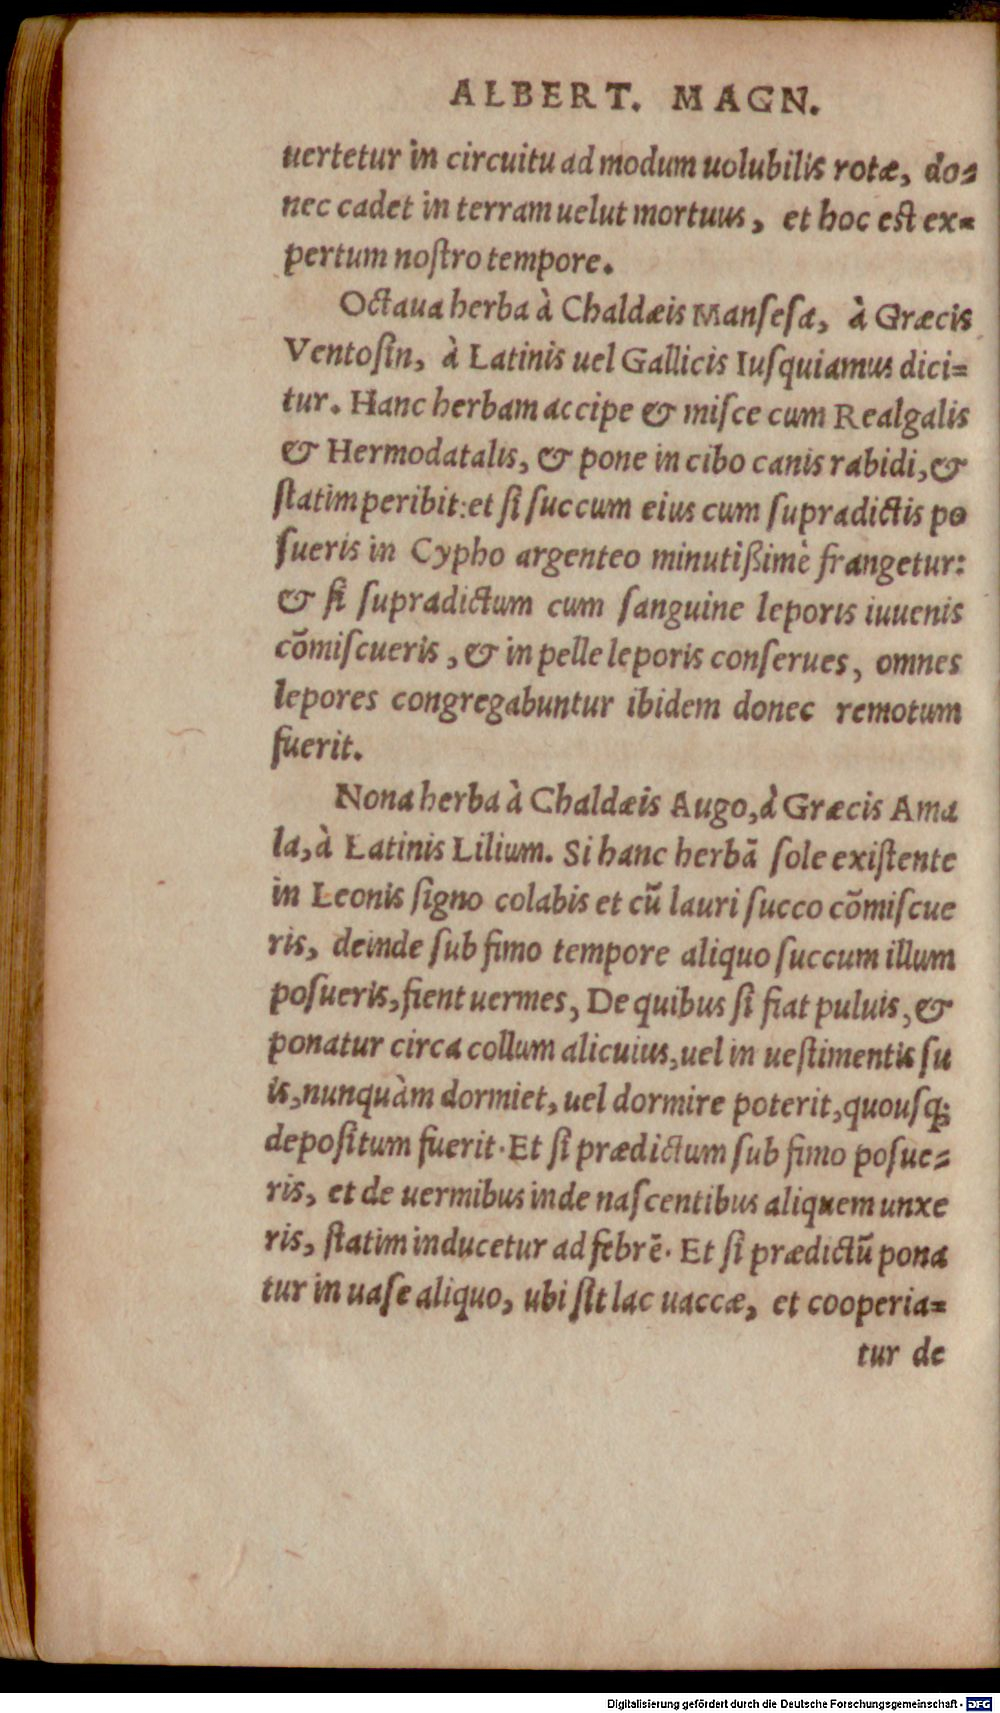 ALBERT. MAGN.
uertetur in circuitu ad modum uolubilis rotæ, do=
nec cadet in terram uelut mortuus, et hoc est ex=
pertum nostro tempore.
Octaua herba à Chaldæis Mansesa, à Græcis
Ventosin, à Latinis uel Gallicis Iusquiamus dici=
tur. Hanc herbam accipe & misce cum Realgalis
& Hermodatalis, & pone in cibo canis rabidi, &
statim peribit: et si succum eius cum supradictis po
sueris in Cypho argenteo minutißimè frangetur:
& si supradictum cum sanguine leporis iuuenis
cōmiscueris, & in pelle leporis conserues, omnes
lepores congregabuntur ibidem donec remotum
fuerit.
Nona herba à Chaldæis Augo, à Græcis Ama
la, à Latinis Lilium. Si hanc herbā sole existente
in Leonis signo colabis et cū lauri succo cōmiscue
ris, deinde sub fimo tempore aliquo succum illum
posueris, fient uermes, De quibus si fiat puluis, &
ponatur circa collum alicuius, uel in uestimentis su
is, nunquàm dormiet, uel dormire poterit, quousq;
depositum fuerit. Et si prædictum sub fimo posue=
ris, et de uermibus inde nascentibus aliquem unxe
ris, statim inducetur ad febrē. Et si prædictū pona
tur in uase aliquo, ubi sit lac uaccæ, et cooperia=
tur de
Digitalisierung gefördert durch die Deutsche Forschungsgemeinschaft - DFG